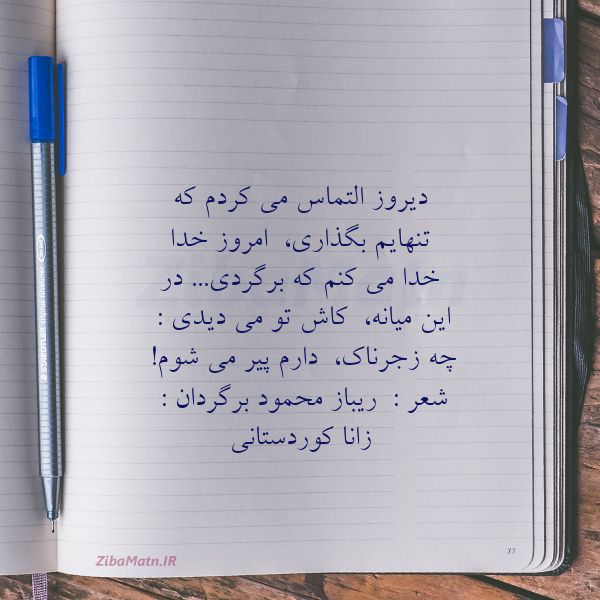 دیروز التماس می کردم که
تنهایم بگذاری، امروز خدا
خدا می کنم که برگردی... در
این میانه، کاش تو می دیدی :
چه زجرناک، دارم پیر می شوم!
شعر : ریباز محمود برگردان :
زانا کوردستانی
77
ZibaMatn.IR